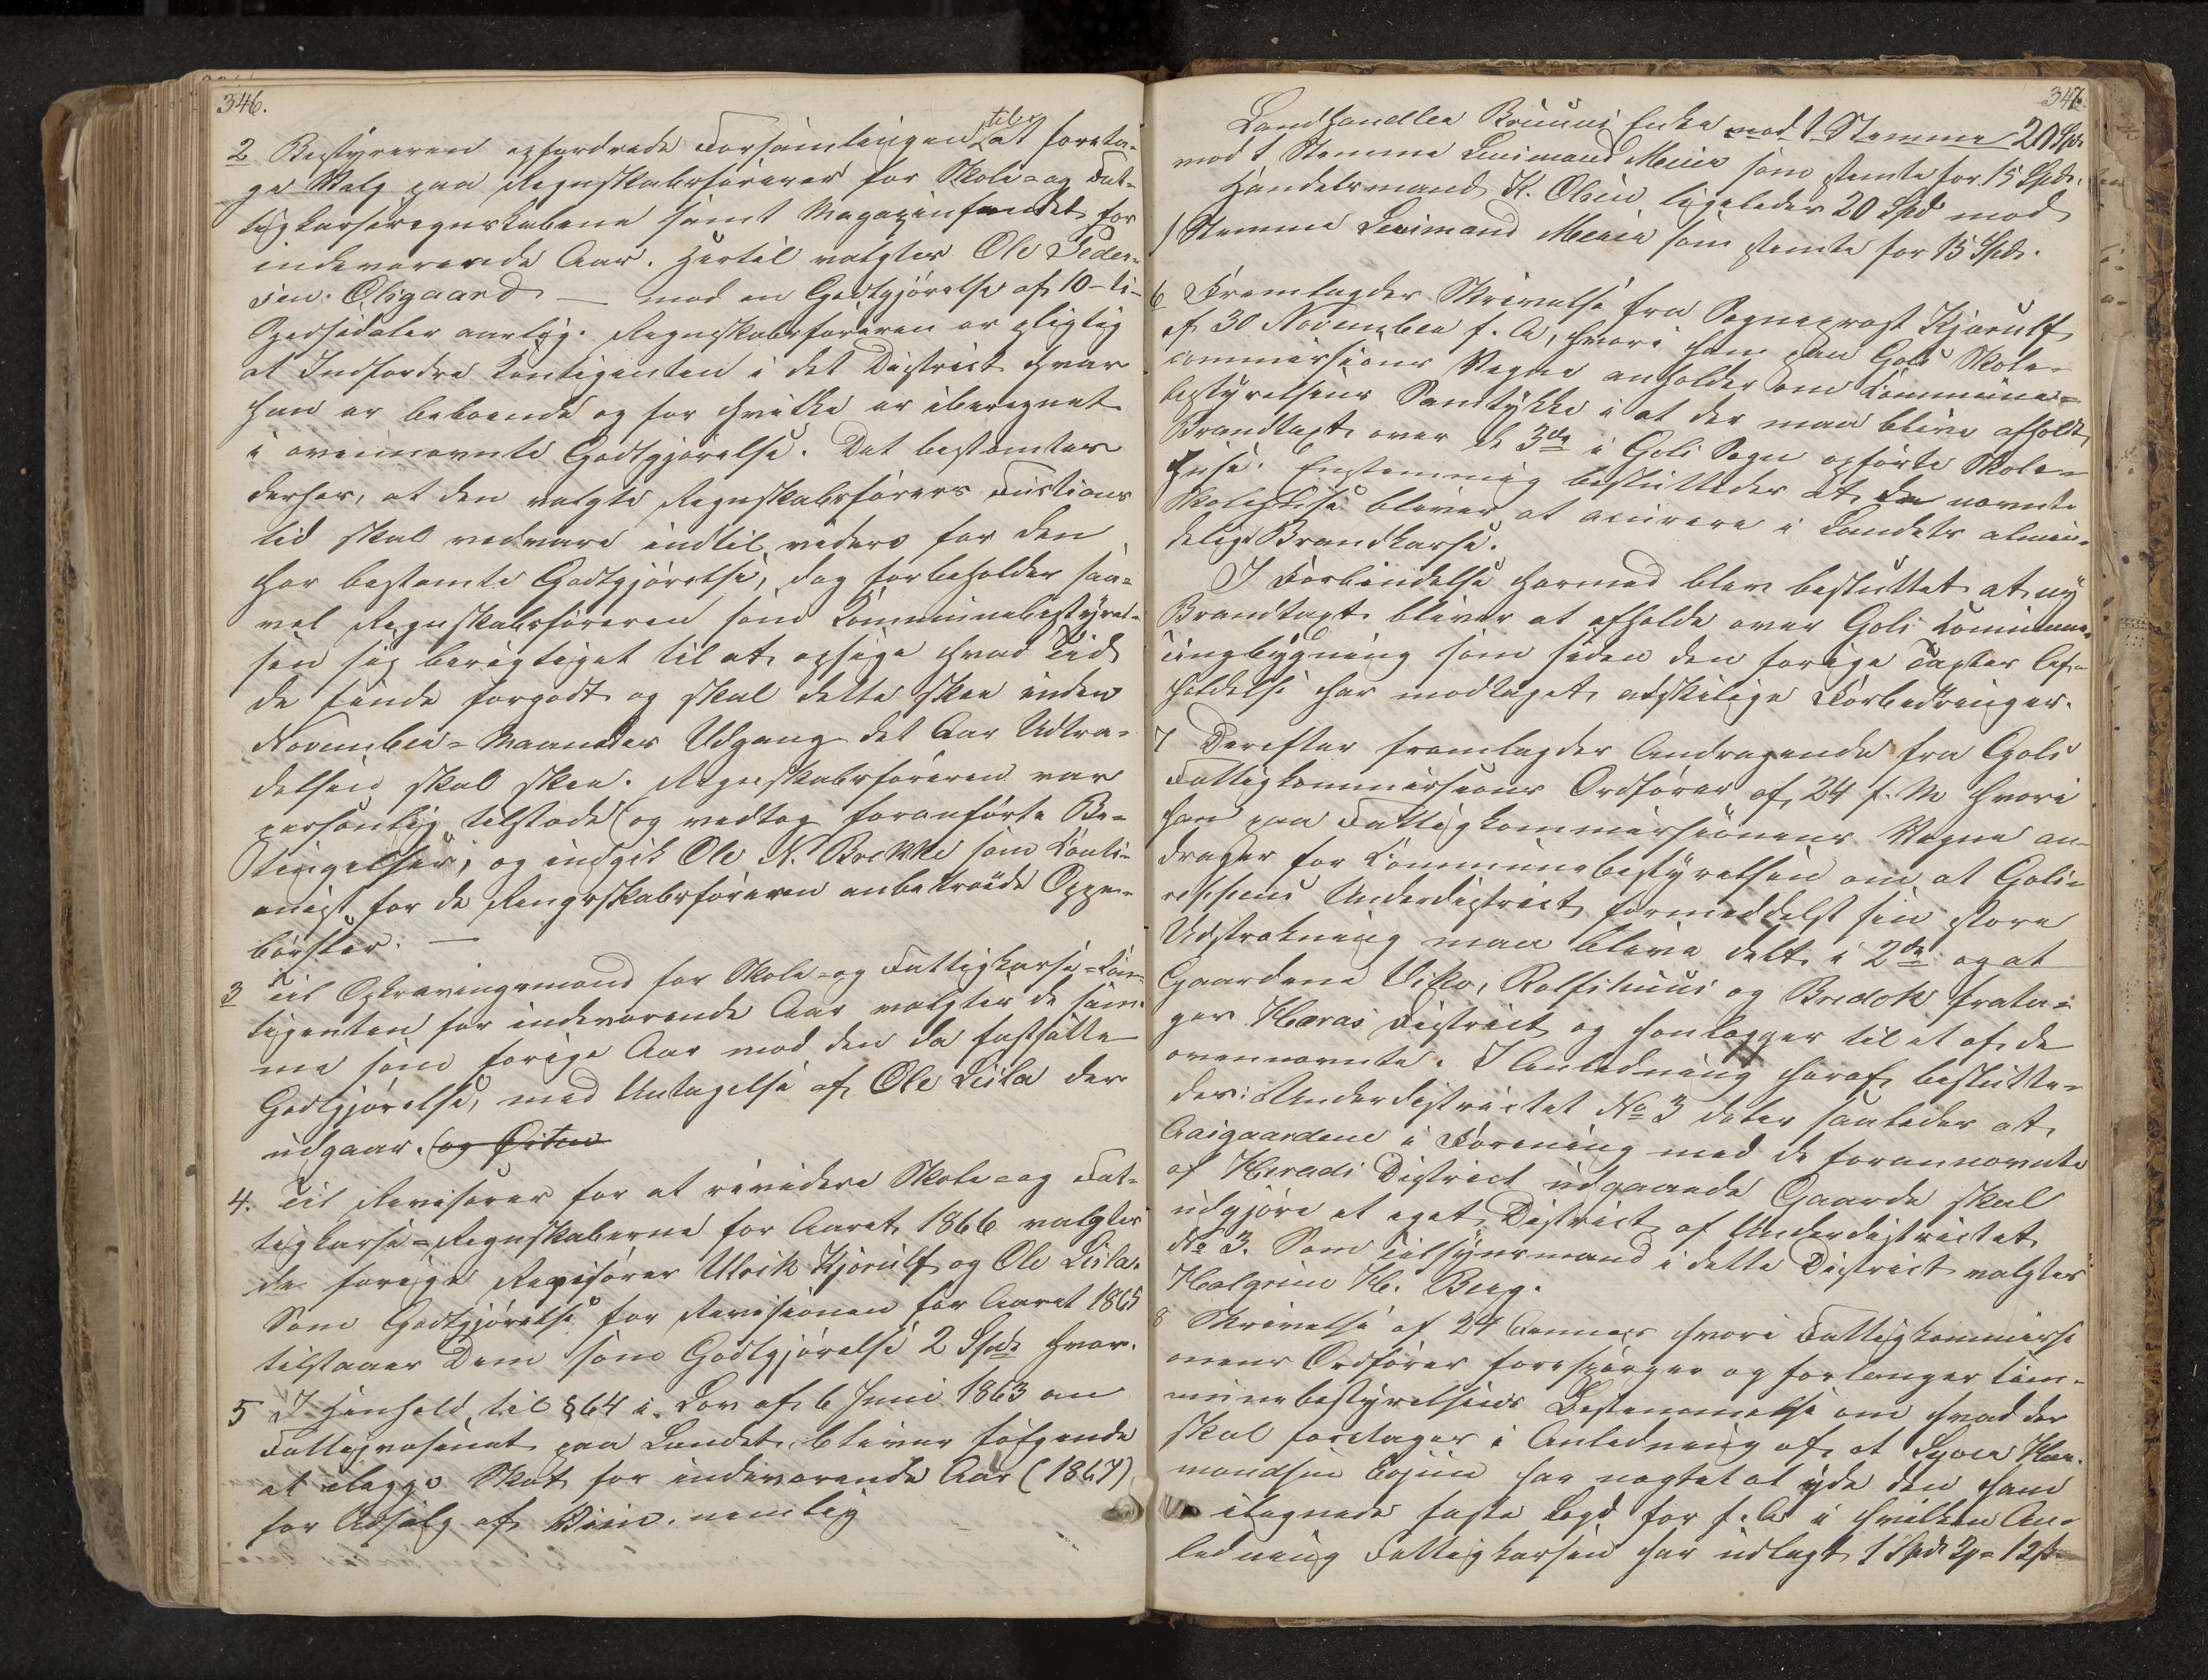 346.
2 Bestyreren opfordrede Forsamlingen til at foreta-
ge Valg paa Regnskabsförerer for Skole- og Fat-
tigkasseregnskabene samt Magazinfondet for
indeværende Aar. Hertil valgtes Ole Peder-
sen Olsgaard — mod en Godtgjörelse af 10 - ti -
Speciedaler aarlig. Regnskabsföreren er pligtig
at Indfordre Kontigenten i det District hvor
han er beboende og for hvilke er iberegnet
i ovennævnte Godtgjörelse. Det bestemtes
derhos, at den valgte Regnskabsförers Functions
tid skal vedvare indtil videre for den
her bestemte Godtgjörelse, dog forbeholder saa-
vel Regnskabsföreren som Kommunebestyrel-
sen sig berigtiget til at opsige hvad Tid
de finde forgodt og skal dette skee inden
November-Maaneds Udgang det Aar Udtræ-
delsen skal skee. Regnskabsföreren var
personlig tilstæde og vedtog foranförte Be-
tingelser, og indgik Ole N. Brekke som Kauti-
onist for de Rengskabsföreren anbetroede Oppe-
börsler. —
3 Til Opkrævingsmænd for Skole- og Fattigkasse-Kon-
tigenten for indeværende Aar valgtes de sam-
me som forige Aar mod den da fastsatte
Godtgjörelse, med Untagelse af Ole Liila der
udgaar. og
4. Til Revisorer for at revidere Skole- og Fat-
tigkasse-Regnskaberne for Aaret 1866 valgtes
de forige Revisorer Ulrik Kjerulf og Ole Liila.
Som Godtgjörelse for Revisionen for Aaret 1865
tilstaaes Dem som Godtgjörelse 2 Spd hver.
5 I Henhold til § 64 i Lov af 6 Juni 1863 om
Fattigvæsenet paa Landet bliver fölgende
at ilægge Skat for indeværende Aar (1867)
for Udsalg af Viin. nemlig
347.
Landhandler Bruuns Enke mod 1 Stemme 20 Spd
mod 1 Stemme Lensmand Meier som stemte for 15 Spd.
Handelsmand K. Olsen ligeledes 20 Spd mod
1 Stemme Lensmand Meier som stemte for 15 Spd.
6 Fremlagdes Skrivelse fra Sogneprest Kjerulf
af 30 November f. A, hvori han paa Gols Skole-
commissions Vegne anholder om Kommune-
bestyrelsens Samtykke i at der maa blive afholdt
Brandtaxt over de 3de i Gols Sogn opförte Skole-
huse. Enstemmig besluttedes at de nævnte
Skolehuse bliver at asurere i Landets almin-
delige Brandkasse.
I Forbindelse hermed blev besluttet at ny
Brandtaxt bliver at afholde over Gols Kommune-
tingbygning som siden den forige Taxtes Af-
holdelse har modtaget adskilige Forbedringer.
7 Derefter fremlagdes Andragende fra Gols
Fattigkommissions Ordförer af 24 f. M hvori
han paa Fattigkommissionens Vegne an-
drager for Kommunebestyrelsen om at Gols-
reppens Underdistrict formeddelst sin store
Udstrækning maa blive delt i 2de og at
Gaardene Vikø, Rolfshuus og Bredok frata-
ges Heraas District og henlægges til et af de
ovennævnte. I Anledning heraf beslutte-
des: Underdistrictet No 3 deles saaledes at
Aasgaardene i Forening med de forannævnte
af Herads District udgaaede Gaarde skal
udgjöre et eget District af Underdistrictet
No 3. Som Tilsynsmand i dette District valgtes
Halgrim H. Berg.
8 Skrivelse af 24 Januar hvori Fattigkommissi
onens Ordförer forespörger og forlanger Kom-
munebestyrelsens Bestemmelse om hvad der
skal foretages i Anledning af at
har nægtet at yde den ham
ilagnede faste Lægd for f. A i hvilken An-
ledning Fattigkassen har udlagt 1 Spd 2 - 12 s